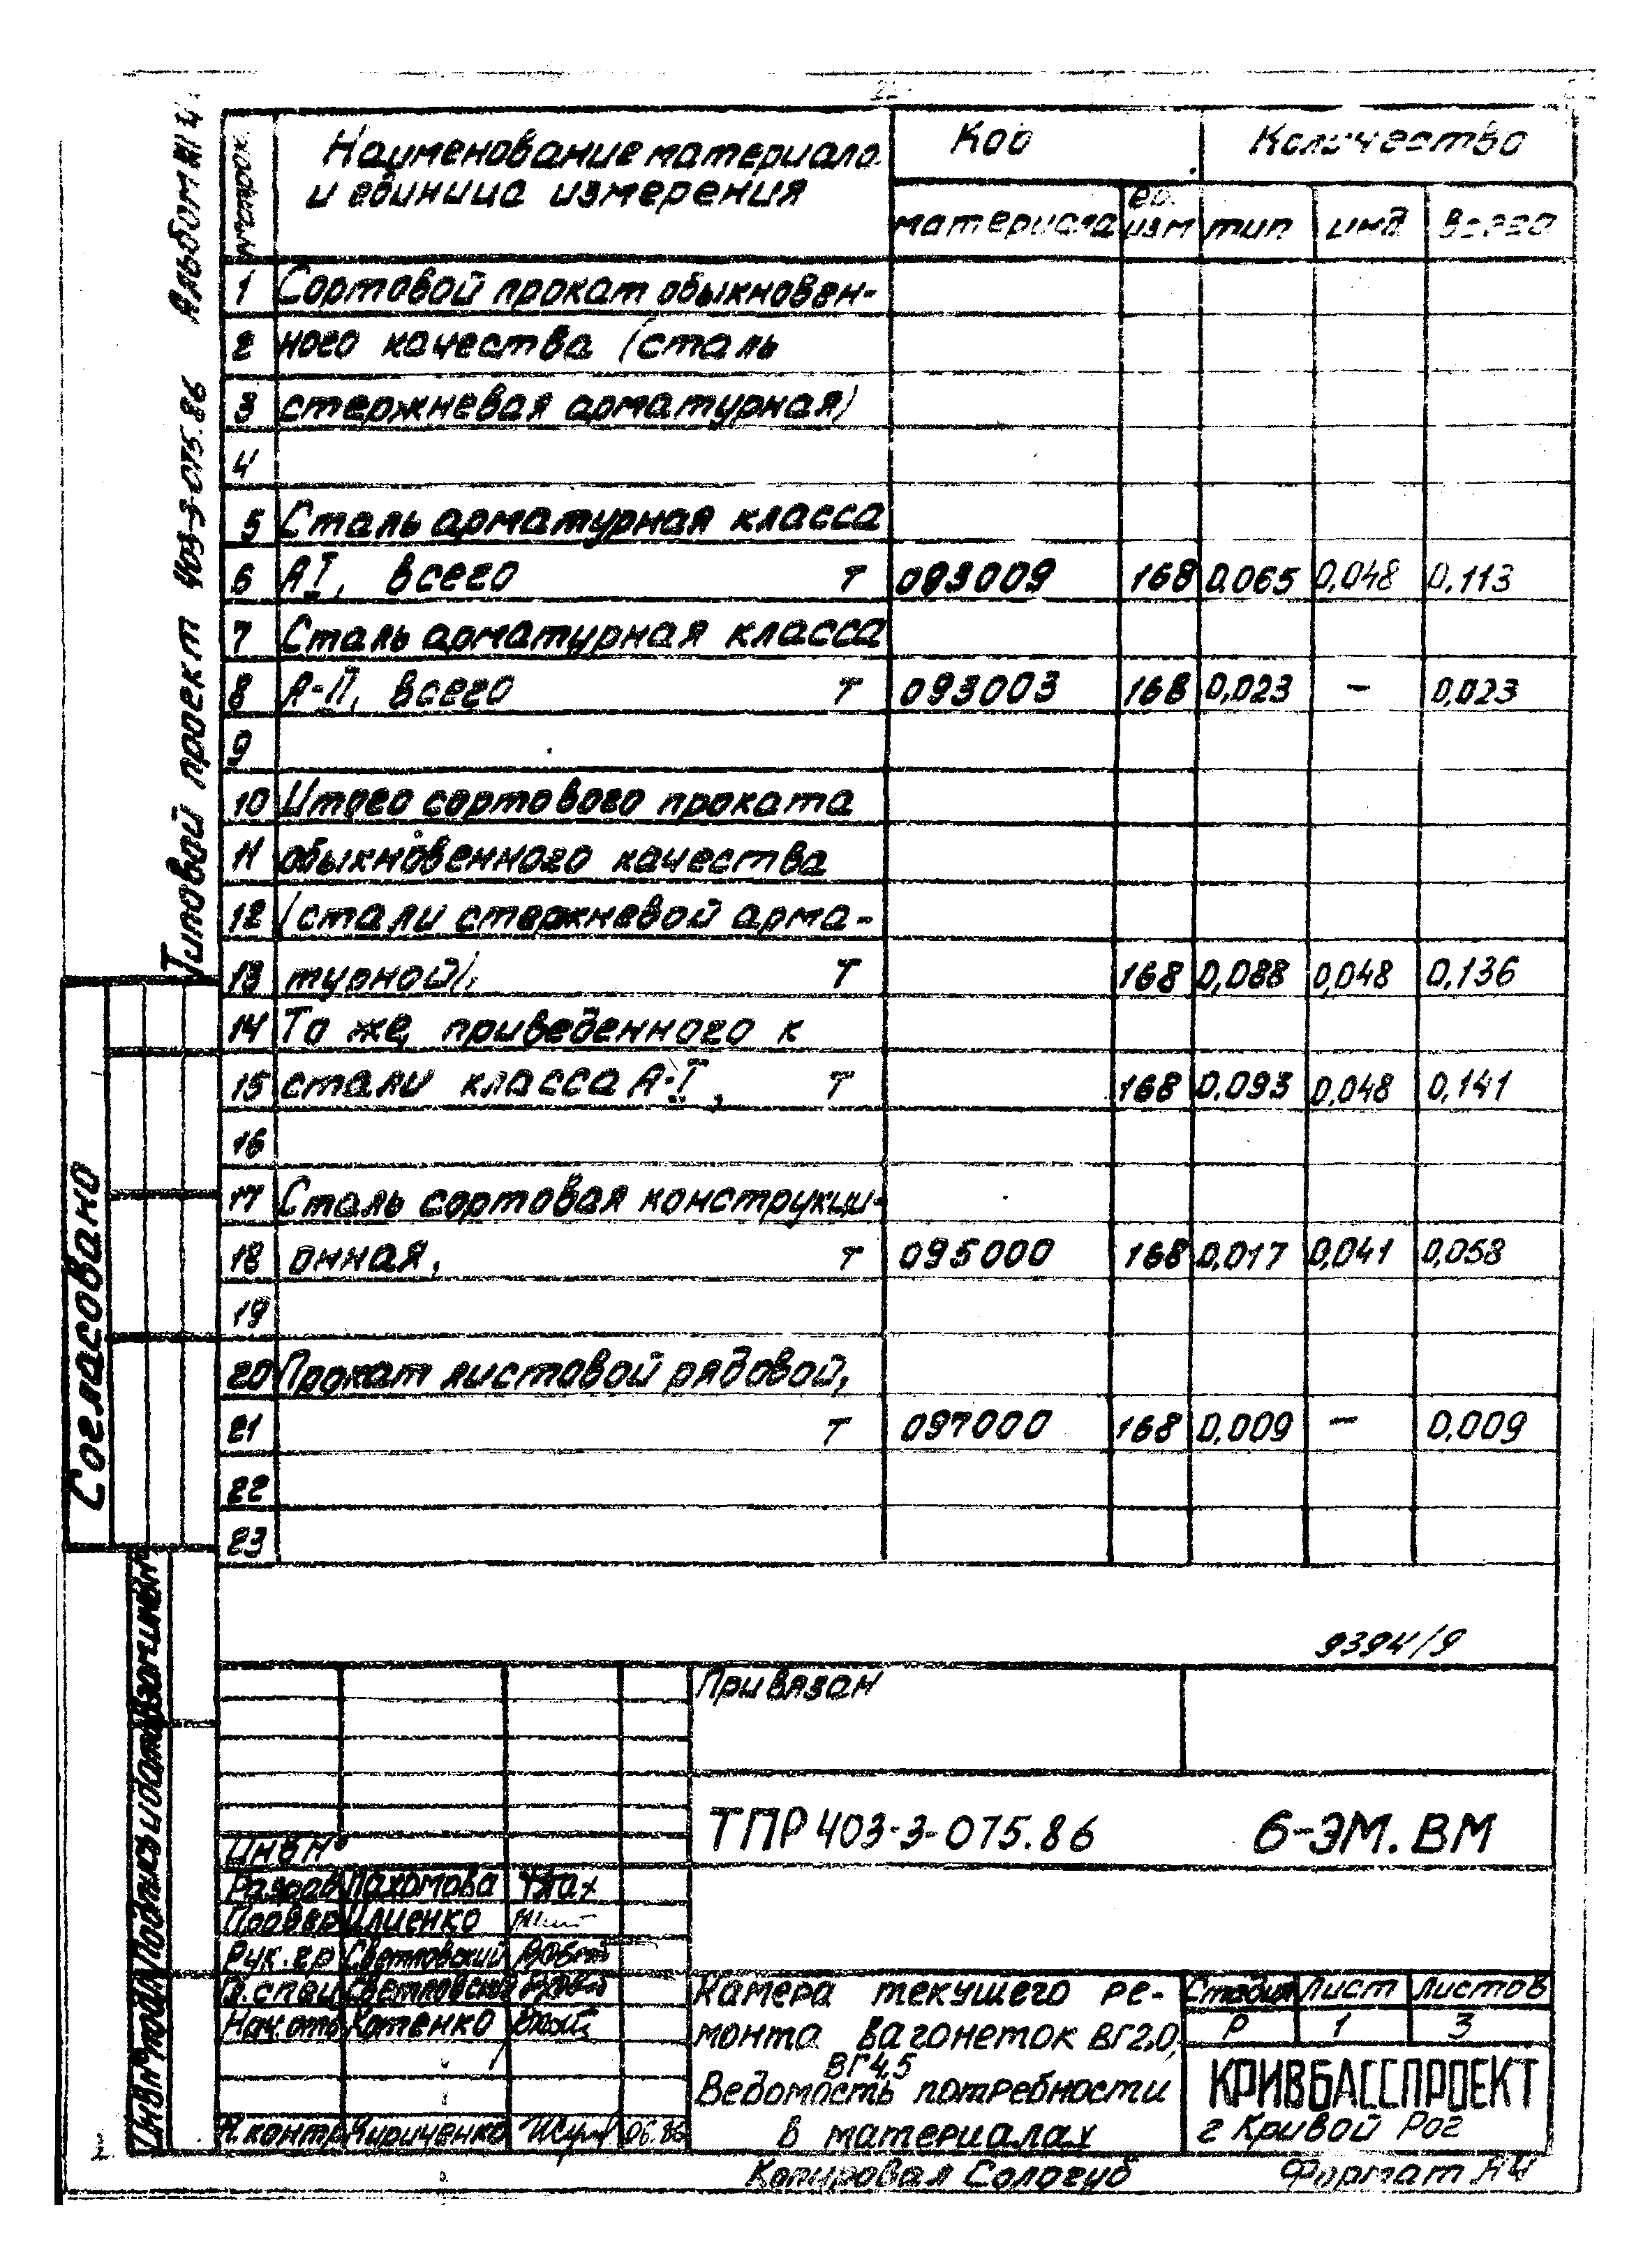 Типовой проект 403-3-075.86 Альбом
Наименование материала Код Количество
и единица измерения
материала ед. изм тип инд всего
1 Сортовой прокат обыкновен-
2 ного качества (сталь
3 стержневая арматурная)
4
5 Сталь арматурная класса
6 АI, всего т 093009 168 0,065 0,048 0,113
7 Сталь арматурная класса
8 А-II, всего т 093003 168 0,023 – 0,023
9
10 Итого сортового проката
11 обыкновенного качества
12 (стали стержневой арма-
13 турной), т 168 0,088 0,048 0,136
14 То же, приведенного к
15 стали класса А-I, т 168 0,093 0,048 0,141
16
17 Сталь сортовая конструкци-
18 онная, т 095000 168 0,017 0,041 0,058
19
20 Прокат листовой рядовой,
21 т 097000 168 0,009 – 0,009
22
23
Согласовано
Инв№подл Подпись и дата Взам инв№
9394/9
Привязан
Инв №
ТПР 403-3-075.86 6-ЭМ.ВМ
Разраб Пахомова
Провер Илиенко
Рук.гр Светловский
Гл.спец Светловский
Нач.отд Котенко
Н.контр Кириченко 06.86
Камера текущего ре-
монта вагонеток ВГ2,0,
ВГ4,5
Ведомость потребности
в материалах
Стадия Лист Листов
Р 1 3
КРИВБАССПРОЕКТ
г Кривой Рог
Копировал Сологуб Формат А4